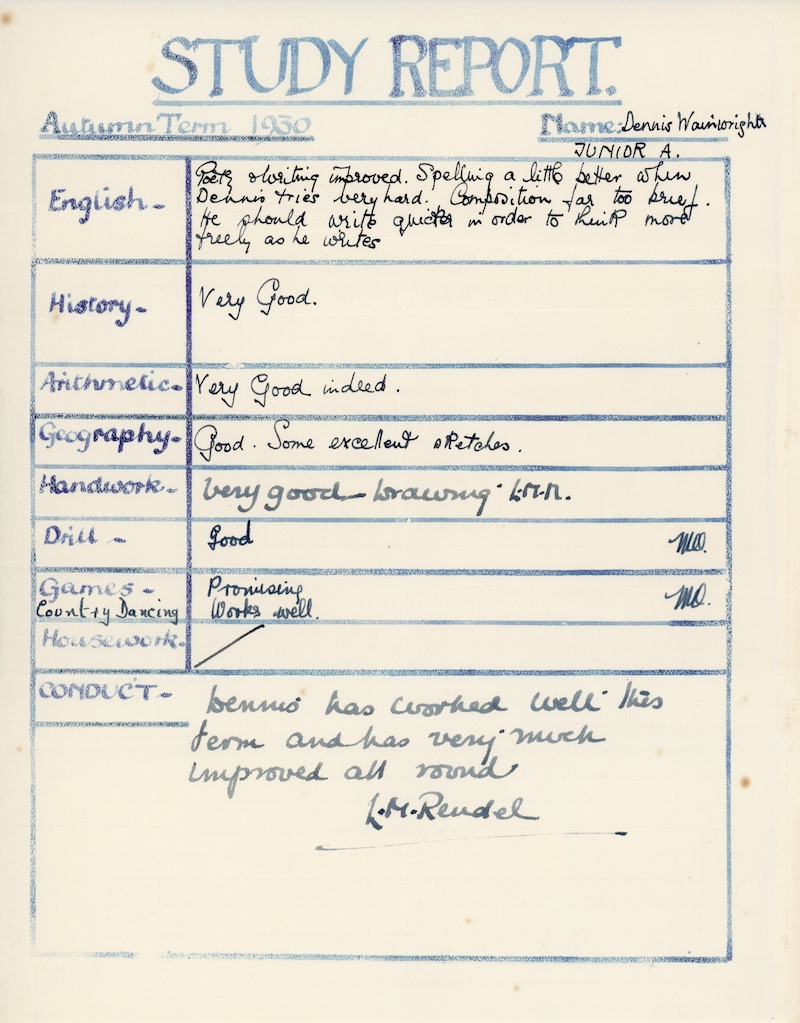 STUDY REPORT.
Autumn Term 1930
Name: Dennis Wainwright
JUNIOR A.
English - Poetry & Writing improved. Spelling a little better when
Dennis tries very hard. Composition far too brief.
He should write quicker in order to think more
freely as he writes
History - Very Good.
Arithmetic - Very Good indeed.
Geography - Good. Some excellent sketches.
Handwork - Very good - Drawing L.M.R.
Drill - Good M.O.
Games - Promising M.O.
Country Dancing Works well.
Housework - /
CONDUCT - Dennis has worked well this
term and has very much
improved all round
L.M. Rendel